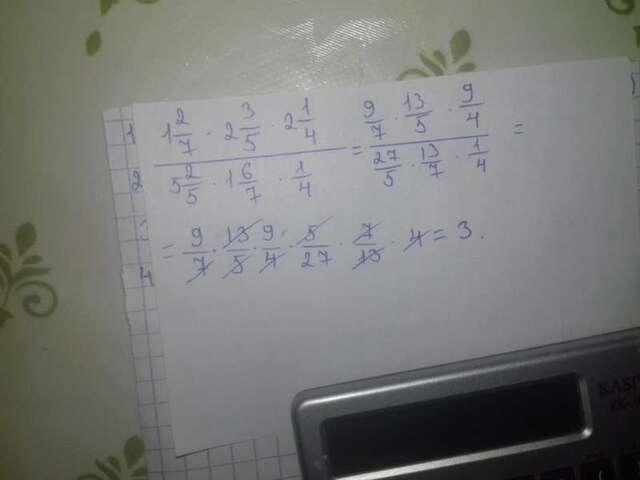 (1 2/7 · 2 3/5 · 2 1/4) / (5 2/5 · 1 6/7 · 1/4) = (9/7 · 13/5 · 9/4) / (27/5 · 13/7 · 1/4) =
= 9/7 · 13/5 · 9/4 · 5/27 · 7/13 · 4 = 3.